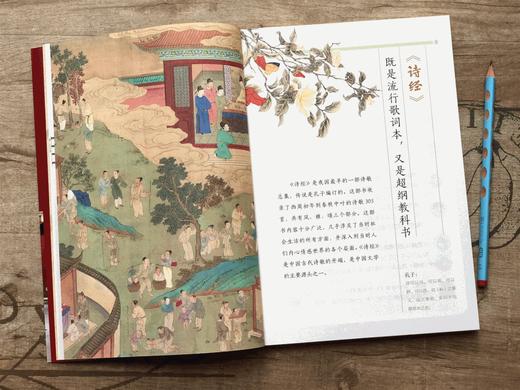 《诗经》
既是流行歌词本，又是超纲教科书
《诗经》是我国最早的一部诗歌
总集，传说是孔子编订的，这部书收
录了西周初年到春秋中叶的诗歌305
首，共有风、雅、颂三个部分，这部
书内容十分广泛，几乎涉及了当时社
会生活的所有方面，并深入到当时人
们内心情感世界的各个层面。《诗经》
是中国古代诗歌的开端，是中国文学
的主要源头之一。
孔子：